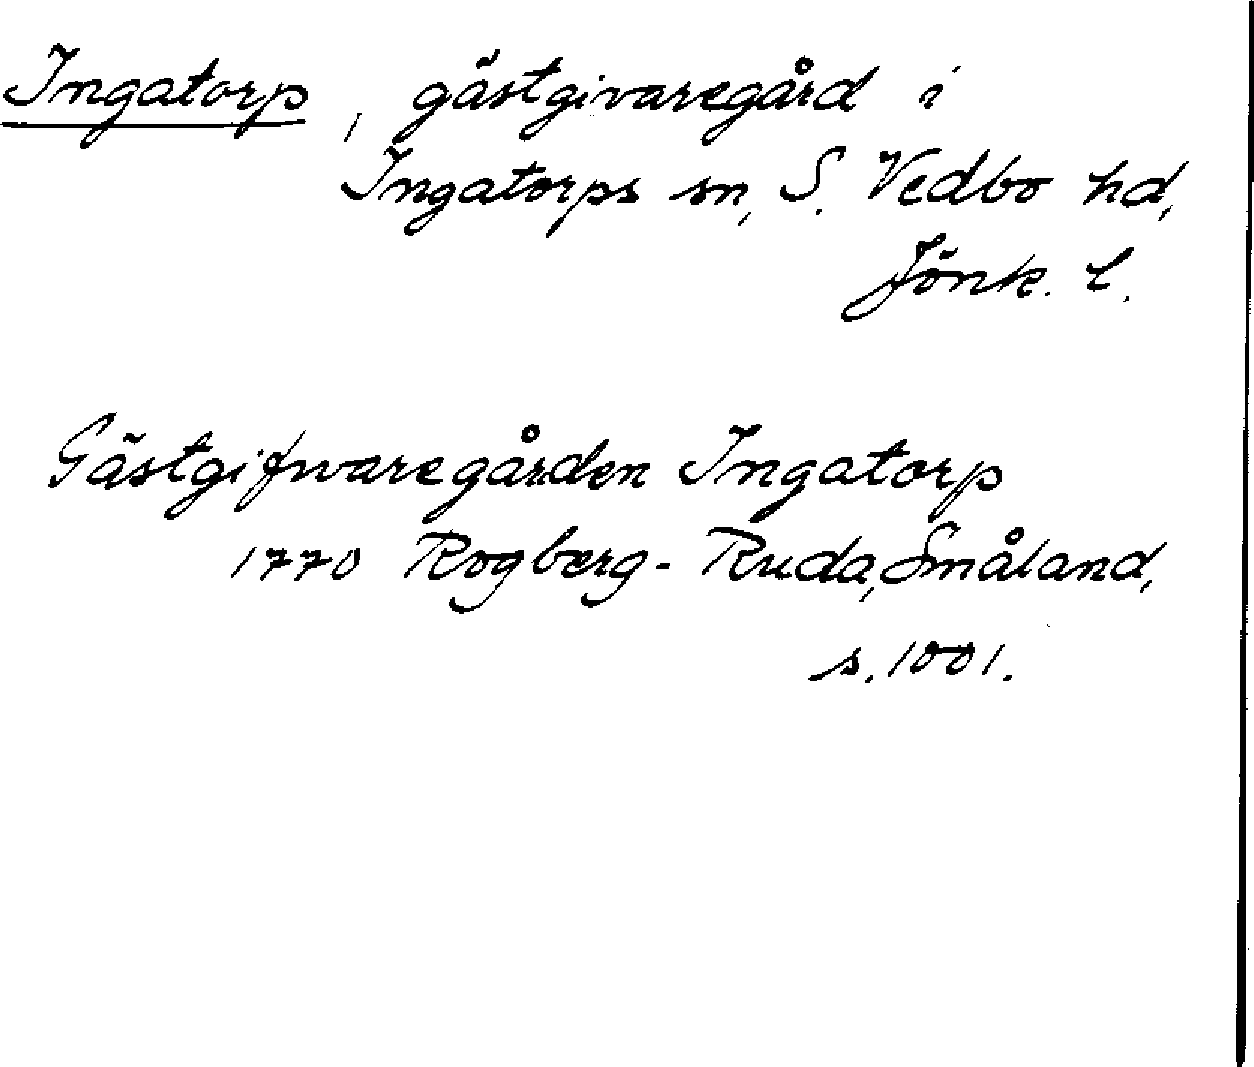 Ingatorp, gästgivaregård i
Ingatorps sn, S. Vedbo hd,
Jönk. l.
Gästgifwaregården Ingatorp
1770 Rogberg-Ruda, Småland,
s. 1001.